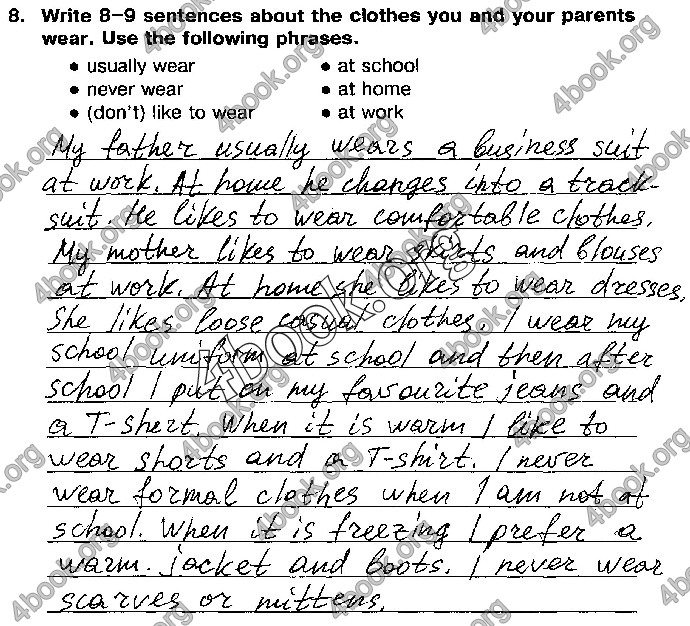 8. Write 8–9 sentences about the clothes you and your parents
wear. Use the following phrases.
• usually wear • at school
• never wear • at home
• (don't) like to wear • at work
My father usually wears a business suit
at work. At home he changes into a track-
suit. He likes to wear comfortable clothes.
My mother likes to wear skirts and blouses
at work. At home she likes to wear dresses,
She likes loose casual clothes. I wear my
school uniform at school and then after
school I put on my favourite jeans and
a T-shert. When it is warm I like to
wear shorts and a T-shirt. I never
wear formal clothes when I am not at
school. When it is freezing I prefer a
warm. jacket and boots. I never wear
scarves or mittens.
4book.org